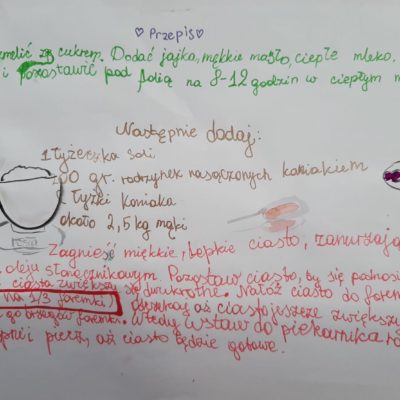 ♡ Przepis ♡
zmelić z cukrem. Dodać jajka, mękkie masło, ciepłe mleko.
i pozostawić pod folią na 8-12 godzin w ciepłym m
Następnie dodaj:
1 łyżeczka soli
100 gr. rodzynek nasączonych koniakiem
łyżki koniaka
około 2,5 kg mąki
Zagnieść miękkie, lepkie ciasto, zanurzają
oleju słonecznikowym. Pozostaw ciasto, by się podnosi
ciasta zwiększy się dwukrotne. Nałóż ciasto do forem
na 1/3 foremki) poczekaj aż ciasto jeszcze zwiększy
go brzegów foremki. Wtedy wstaw do piekarnika
i piecz, aż ciasto będzie gotowe.